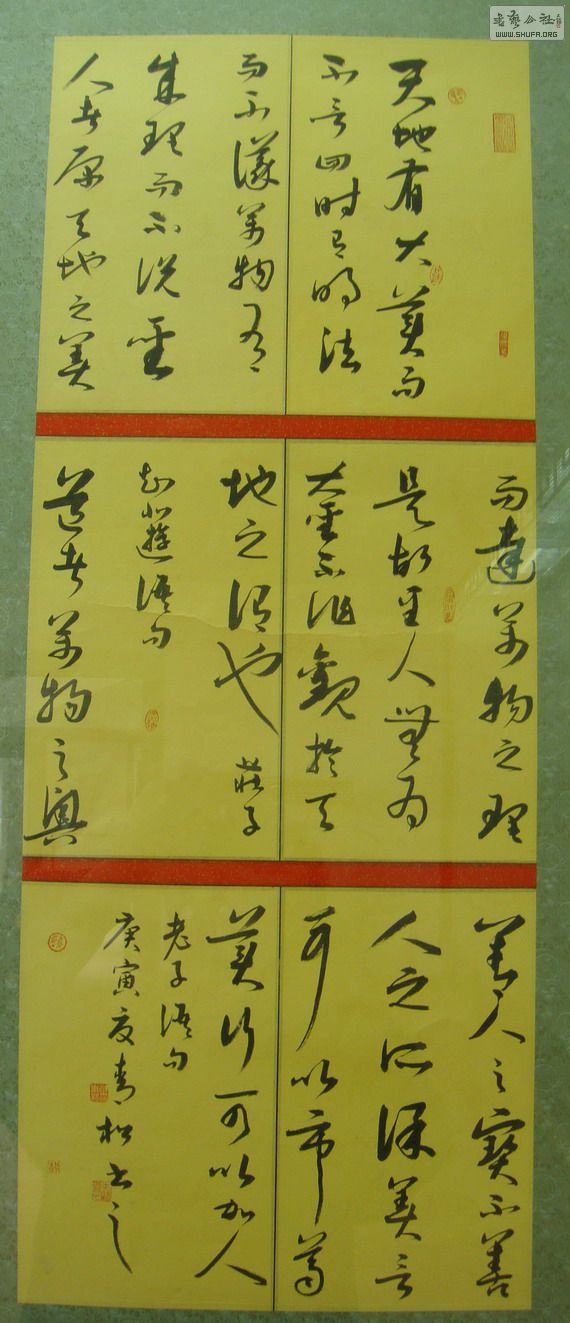 書藝公社
WWW.SHUFA.ORG
天地有大美而
不言四时有明法
而不議萬物有
成理而不说聖
人者原天地之美
而達萬物之理
是故至人無为
大聖不作觀於天
地之謂也 莊子
知北遊語句
道者萬物之奥
善人之寶不善
人之所保美言
可以市尊
美行可以加人
老子語句
庚寅夏青松书之